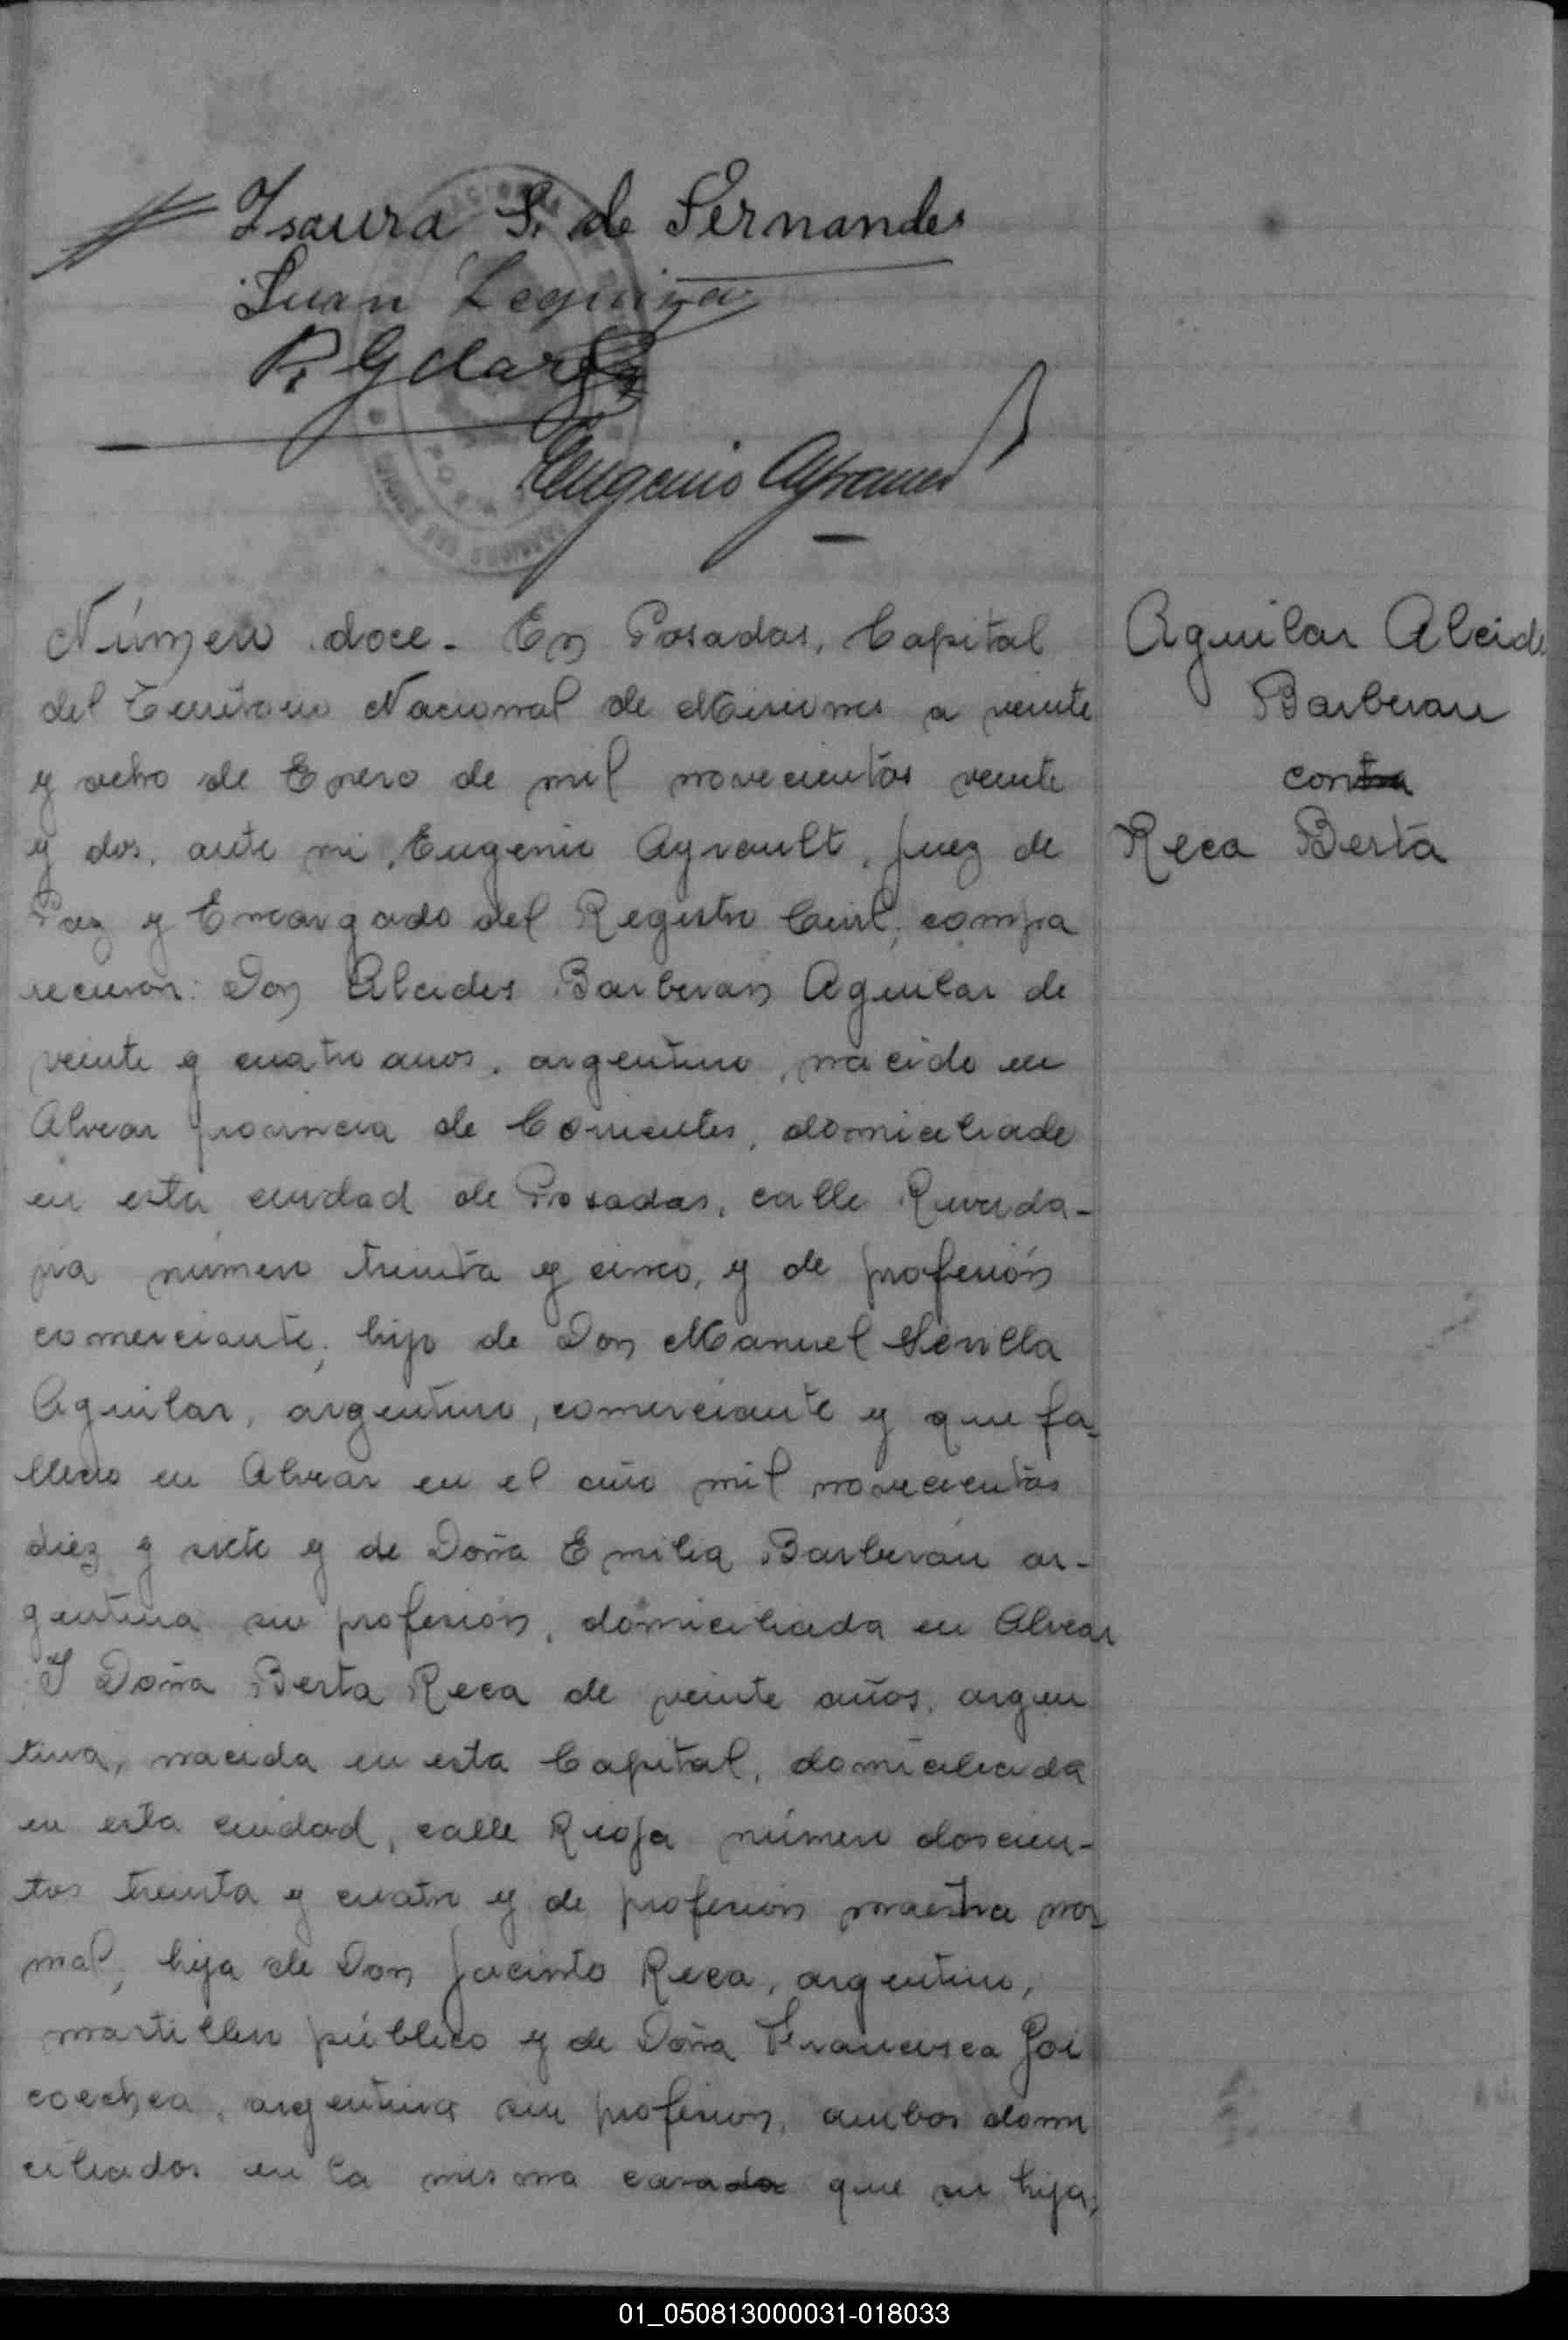 Isaura F. de Fernandes
Juan Leguiza
Eugenio Ayrault
Número doce. En Posadas, Capital
del Territorio Nacional de Misiones a veinte
y ocho de Enero de mil novecientos veinte
y dos, ante mi, Eugenio Ayrault, Juez de
Paz y Encargado del Registro Civil, compa
recieron: Don Alcides Barberan Aguilar de
veinte y cuatro anos, argentino, nacido en
Alvear provincia de Corrientes, domiciliado
en esta ciudad de Posadas, calle Rivada-
via número treinta y cinco, y de profesión
comerciante, hijo de Don Manuel Sevilla
Aguilar, argentino, comerciante y que fa-
llecio en Alvear en el año mil novecientos
diez y siete y de Doña Emilia Barberán ar-
gentina sin profesión, domiciliada en Alvear
Y Doña Berta Reca de veinte años, argen
tina, nacida en esta Capital, domiciliada
en esta ciudad, calle Rioja número doscien-
tos treinta y cuatro y de profesión maestra nor
mal, hija de Don Jacinto Reca, argentino,
martillero público y de Doña Francisca Goi
coechea, argentina sin profesion, ambos domi
ciliados en la misma casa que su hija;
Aguilar Alcide
Barberan
con
Reca Berta
01_050813000031-018033